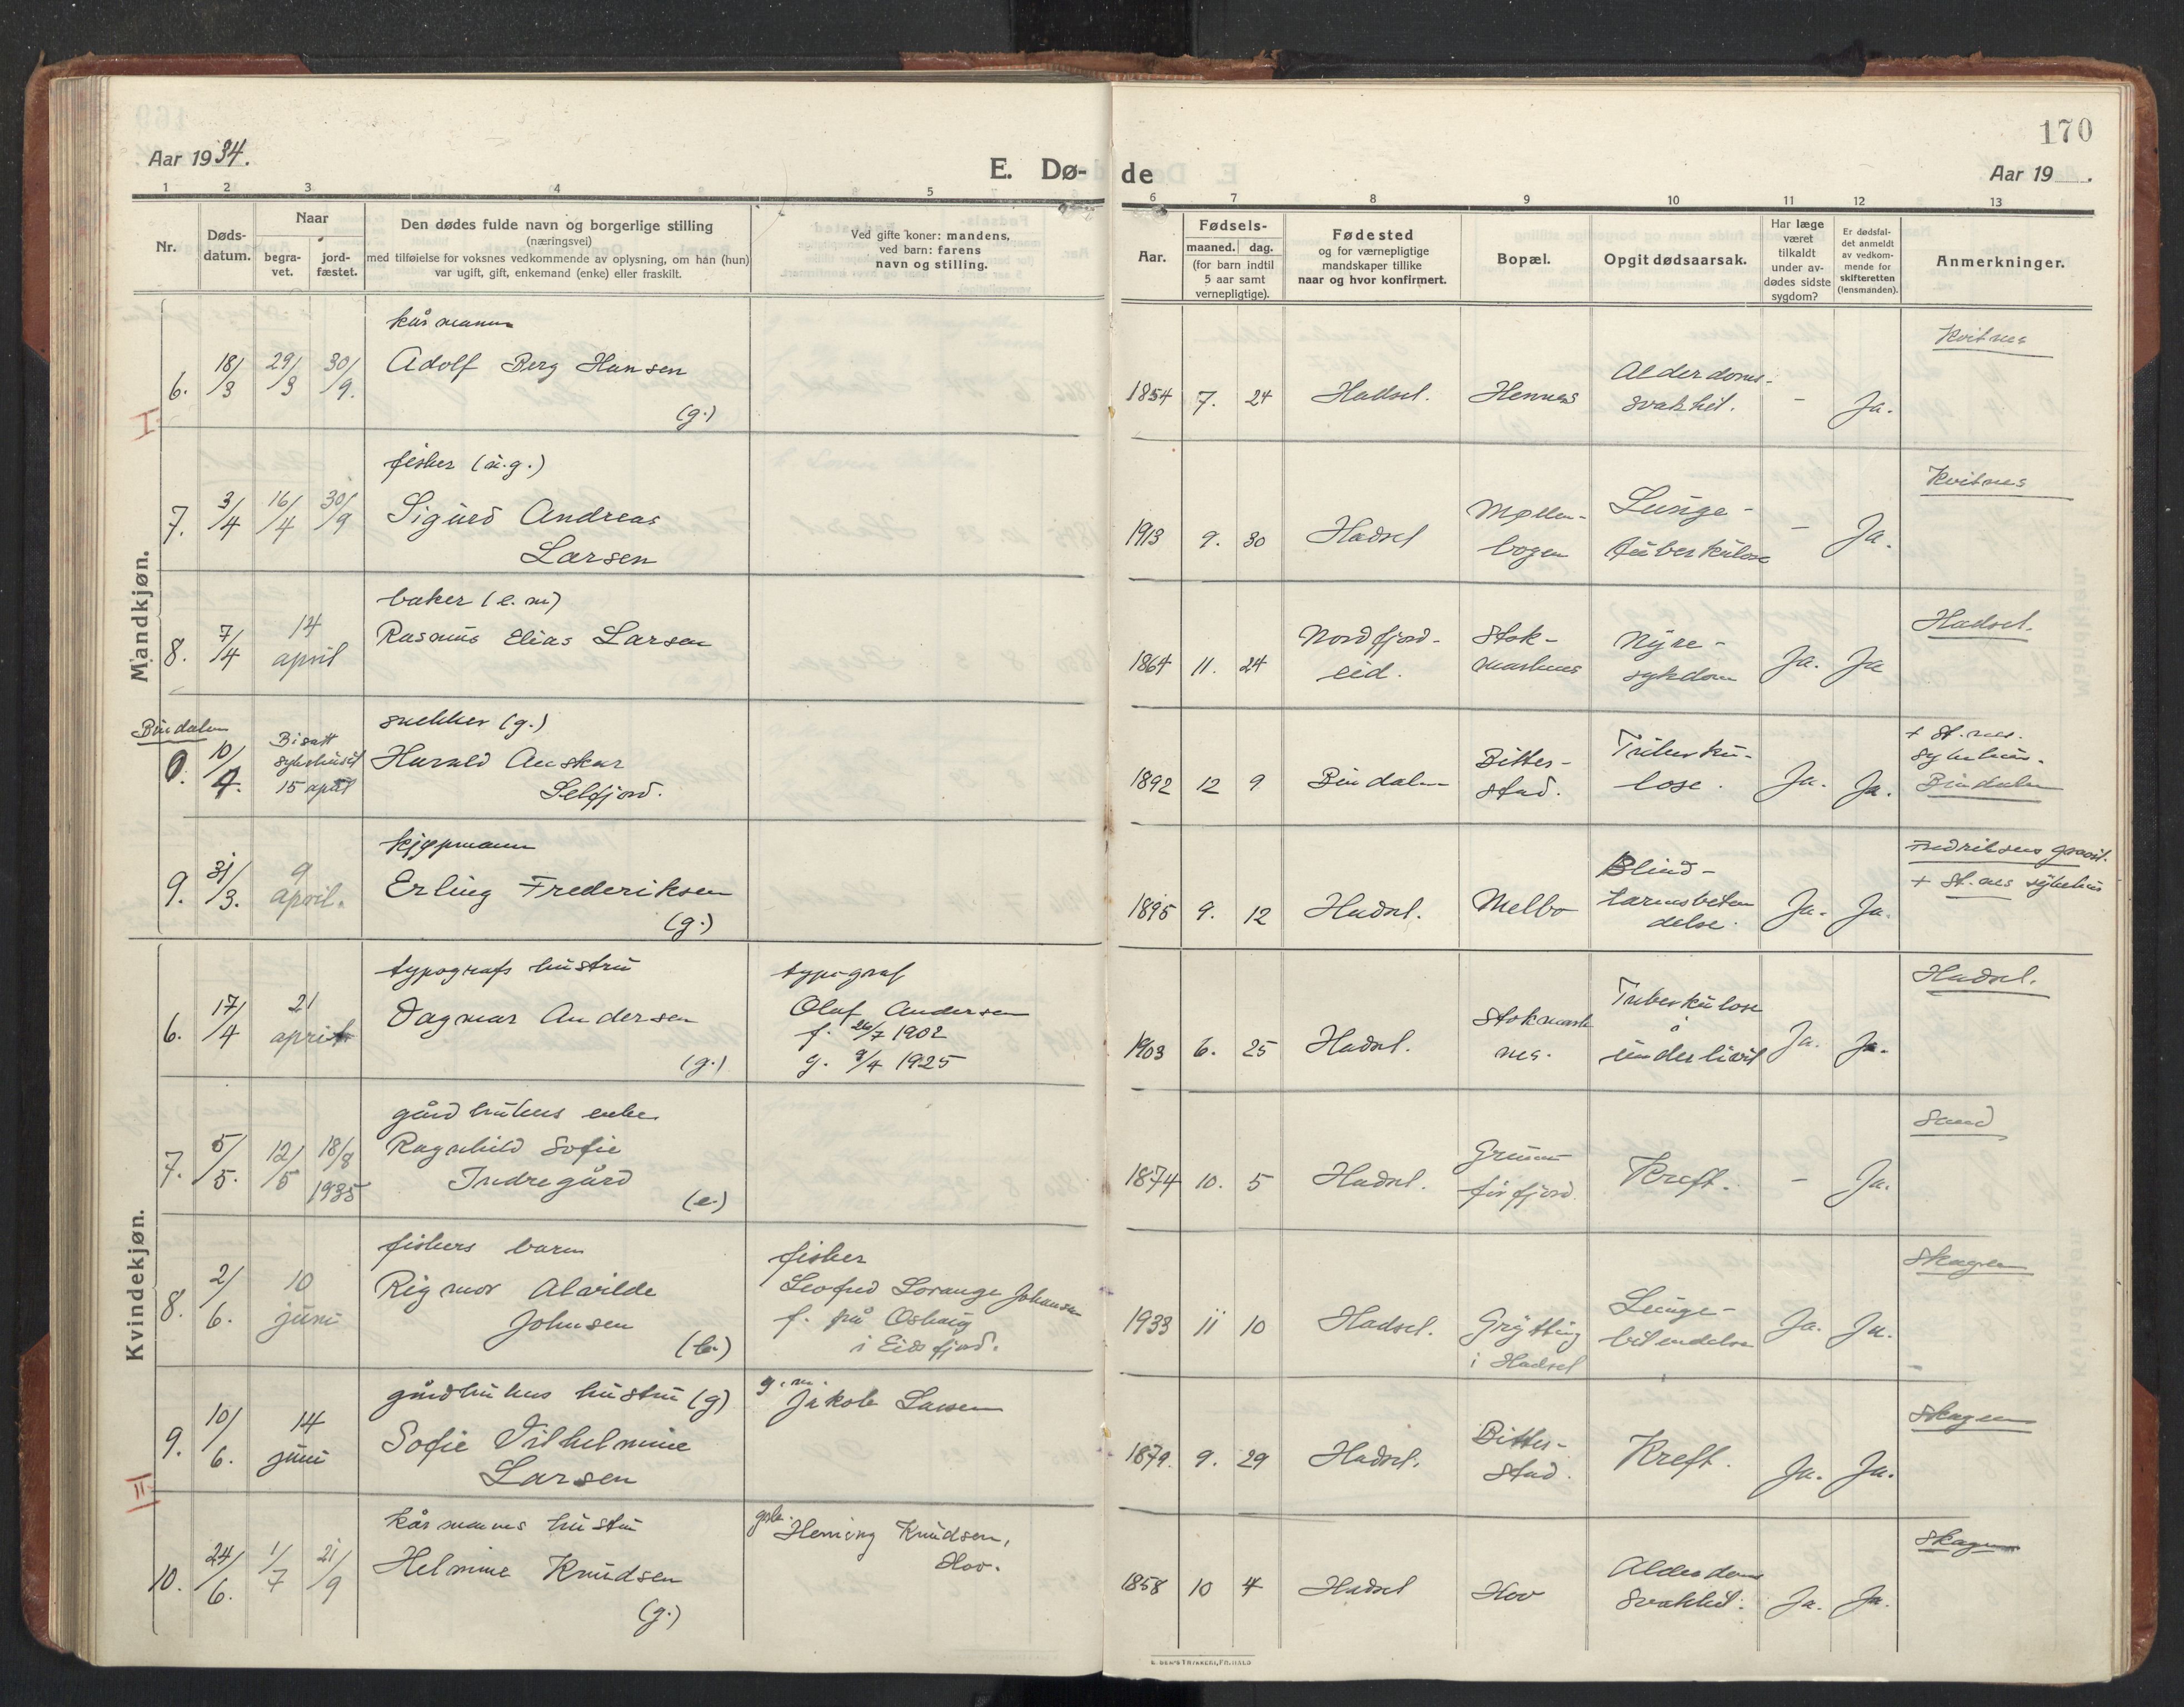 170
Aar 1934.
E. Dø-
de
Aar 19 .
1 2 3 4 5 6 7 8 9 10 11 12 13
Nr.
Døds-
datum.
Naar
begra-
vet.
jord-
fæstet.
Den dødes fulde navn og borgerlige stilling
(næringsvei)
med tilføielse for voksnes vedkommende av oplysning, om han (hun)
var ugift, gift, enkemand (enke) eller fraskilt.
Ved gifte koner: mandens,
ved barn: farens
navn og stilling.
Aar.
Fødsels-
maaned. dag.
(for barn indtil
5 aar samt
vernepligtige).
Fødested
og for værnepligtige
mandskaper tillike
naar og hvor konfirmert.
Bopæl.
Opgit dødsaarsak.
Har læge
været
tilkaldt
under av-
dødes sidste
sygdom?
Er dødsfal-
det anmeldt
av vedkom-
mende for
skifteretten
(lensmanden).
Anmerkninger.
Mandkjøn.
I
6. 18/3 29/3 30/9.
kårmann
Adolf Berg Hansen
(g.)
1854 7. 24 Hadsel. Hennes
Alderdoms-
svakhet.
- Ja.
Kvitnes
7. 3/4 16/4 30/9
fisker (u.g.)
Sigurd Andreas
Larsen
1913 9. 30 Hadsel
Møllen-
bogen
Lunge-
tuberkulose
- Ja.
Kvitnes
8. 7/4
14
april
baker (e.m)
Rasmus Elias Larsen
1864 11. 24
Nordfjord-
eid.
Stok-
marknes
Nyre-
sykdom
Ja. Ja
Hadsel.
Bindalen
0. 10/4.
Bisatt
sykehuset
15 april
snekker (g.)
Harald Anskar
Selfjord.
1892 12 9 Bindalen
Bitter-
stad.
Tuberku-
lose.
Ja. Ja.
+ St.nes.
sykehus.
Bindalen
9. 31/3.
9
april.
kjøpmann
Erling Frederiksen
(g.)
1895 9. 12 Hadsel. Melbo
Blind-
tarmsbeten
delse.
Ja. Ja.
Fredriksens gravst.
+ St.nes sykehus
Kvindekjøn.
6. 17/4
21
april
typografs hustru
Dagmar Andersen
(g.)
typograf
Olaf Andersen
f. 26/7 1902
g. 9/4 1925
1903 6. 25 Hadsel.
Stokmark
nes.
Tuberkulose
i
underlivet
Ja. Ja.
Hadsel.
7. 5/5. 12/5 18/8
1935
gårdbrukers enke
Ragnhild Sofie
Indregård
(e.)
1874 10. 5 Hadsel.
Grunn
førfjord.
Kreft.
- Ja.
Sand
8. 2/6.
10
juni
fiskers barn
Rigmor Alvilde
Johnsen
(b.)
fisker
Leofred Lorange Johansen
f. på Oshaug
i Eidsfjord.
1933 11 10 Hadsel.
Grytting
i Hadsel
Lunge-
betendelse
Ja. Ja.
Skagen
9. 10/6.
14
juni
gårdbrukers hustru (g)
Sofie Vilhelmine
Larsen
g.m.
Jakob Larsen
1879. 9. 29 Hadsel.
Bitter-
stad.
Kreft.
Ja. Ja.
Skagen
II
10. 24/6. 1/7 21/9
kårmanns hustru
Helmine Knudsen
(g.)
Hemming Knudsen,
Hov.
1858 10 4 Hadsel Hov
Alderdoms
svakhet.
Ja. Ja.
Skagen